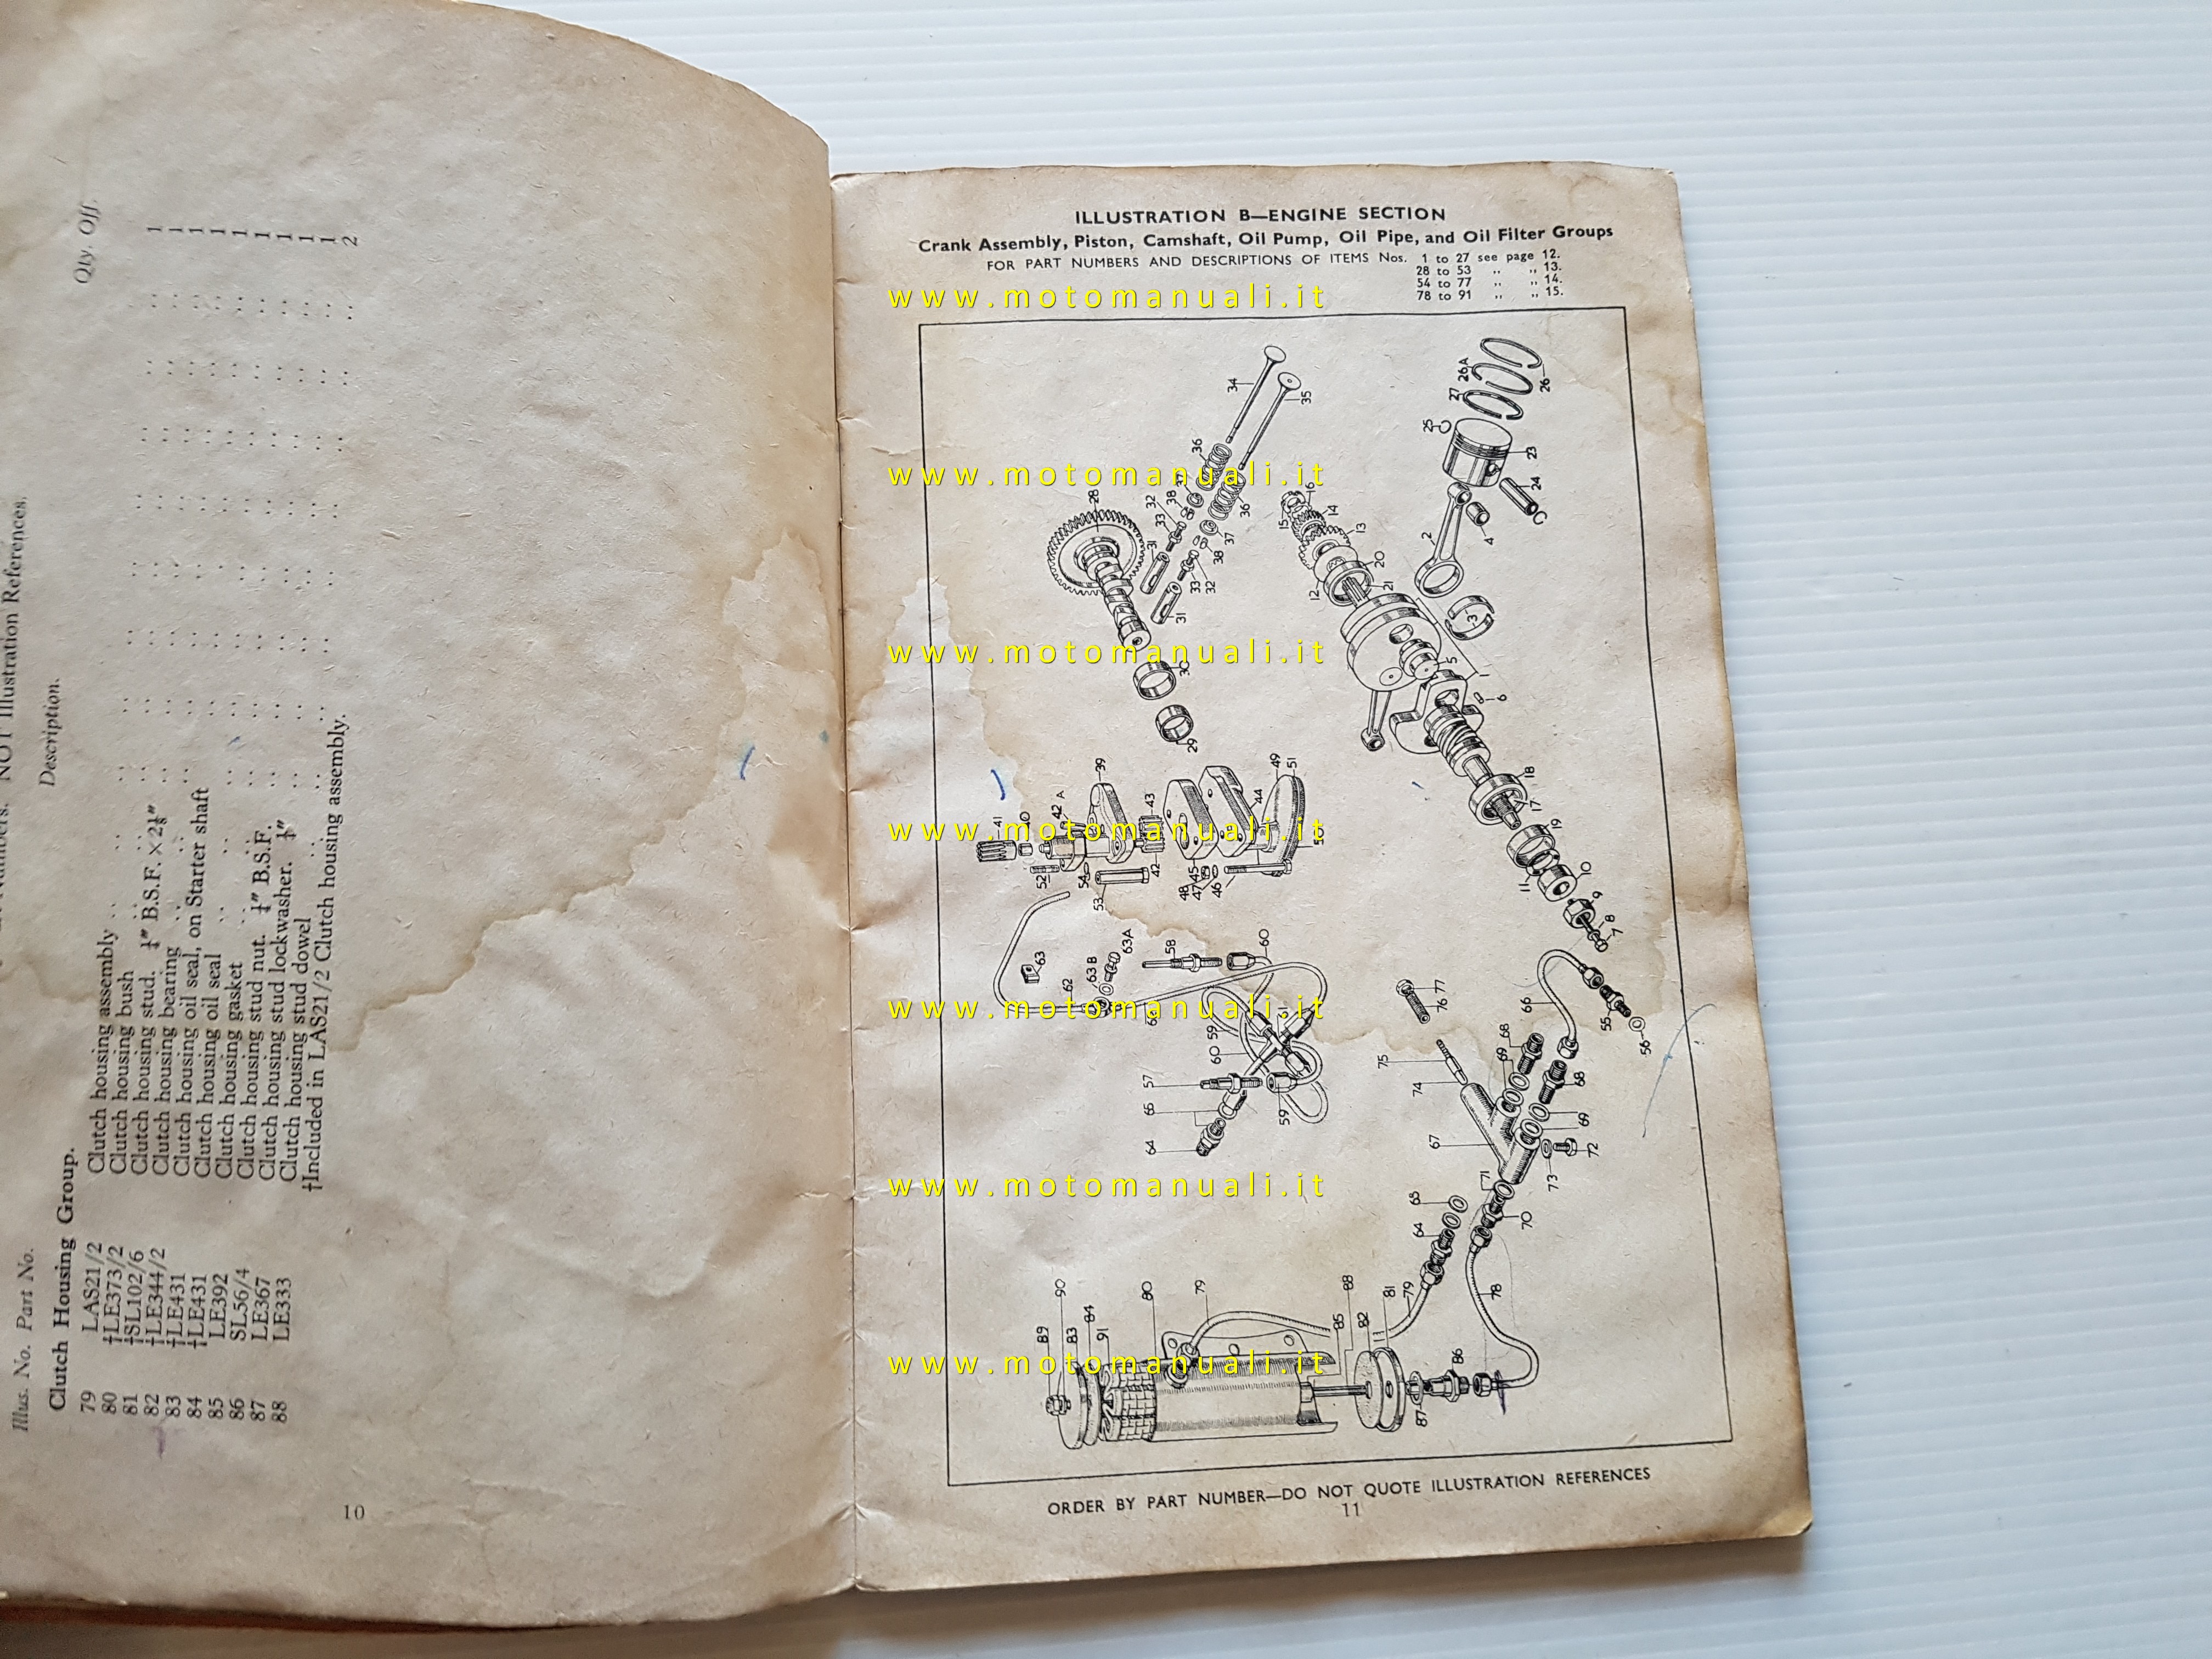 NOT Illustration References.
Illus. No. Part No. Description. Qty. Off.
Clutch Housing Group.
79 LAS21/2 Clutch housing assembly .. .. .. .. .. .. .. .. .. 1
80 †LE373/2 Clutch housing bush .. .. .. .. .. .. .. .. 1
81 †SL102/6 Clutch housing stud. ¼″ B.S.F. ×2⅛″ .. .. .. .. .. .. 1
82 †LE344/2 Clutch housing bearing .. .. .. .. .. .. .. .. 1
83 †LE431 Clutch housing oil seal, on Starter shaft .. .. .. .. .. .. 1
84 †LE431 Clutch housing oil seal .. .. .. .. .. .. .. .. 1
85 LE392 Clutch housing gasket .. .. .. .. .. .. .. .. 1
86 SL56/4 Clutch housing stud nut. ¼″ B.S.F. .. .. .. .. .. .. 1
87 LE367 Clutch housing stud lockwasher. ¼″ .. .. .. .. .. .. 1
88 LE333 Clutch housing stud dowel .. .. .. .. .. .. .. 2
†Included in LAS21/2 Clutch housing assembly.
10
ILLUSTRATION B—ENGINE SECTION
Crank Assembly, Piston, Camshaft, Oil Pump, Oil Pipe, and Oil Filter Groups
FOR PART NUMBERS AND DESCRIPTIONS OF ITEMS Nos. 1 to 27 see page 12.
28 to 53 ,, ,, 13.
54 to 77 ,, ,, 14.
78 to 91 ,, ,, 15.
www.motomanuali.it
34
35
26A
27
26
25
36
23
www.motomanuali.it
24
28
38
32
33
36
16
15
14
13
2
4
31
37
38
20
33
32
12
21
31
3
www.motomanuali.it
30
5
1
6
29
39
49
51
18
42 A
43
44
17
41
www.motomanuali.it
19
52
54
42
45
48
47
46
53
11
10
9
8
7
63A
58
60
63
63 B
62
77
76
66
www.motomanuali.it
59
60
68
55
56
75
57
69
74
68
65
59
69
64
67
72
71
73
www.motomanuali.it
65
64
70
90
80
79
88
79
78
89
83
84
91
85
82
81
www.motomanuali.it
86
87
ORDER BY PART NUMBER—DO NOT QUOTE ILLUSTRATION REFERENCES
11